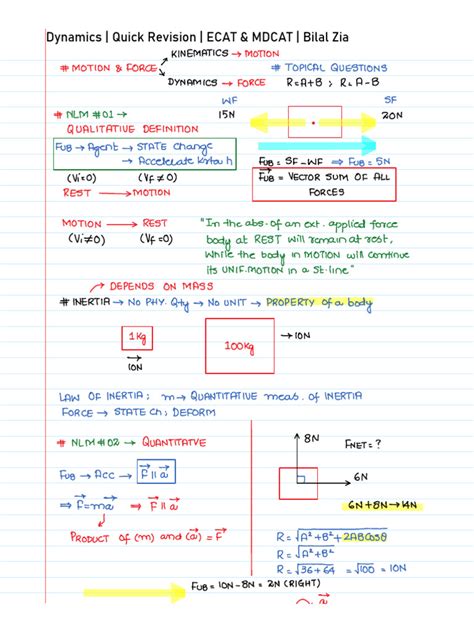 Dynamics | Quick Revision | ECAT & MDCAT | Bilal Zia
KINEMATICS → MOTION
# MOTION & FORCE
DYNAMICS → FORCE
# TOPICAL QUESTIONS
R=A+B ; R=A-B
# NLM #01 →
QUALITATIVE DEFINITION
WF
15N
SF
20N
FUB → Agent → STATE Change
→ Accelerate
(Vi=0) (Vf≠0)
REST → MOTION
FUB = SF-WF ⇒ FUB = 5N
FUB = VECTOR SUM OF ALL
FORCES
MOTION → REST
(Vi≠0) (Vf=0)
"In the abs. of an ext. applied force
body at REST will remain at rest,
While the body in MOTION will continue
its UNIF. MOTION in a St. line"
DEPENDS ON MASS
# INERTIA → NO PHY. Qty → NO UNIT → PROPERTY of a body
1Kg
→ 10N
100Kg
→ 10N
LAW OF INERTIA ; m → QUANTITATIVE meas. of INERTIA
FORCE → STATE Ch ; DEFORM
# NLM #02 → QUANTITATVE
FUB → Acc → F || a
⇒ F=ma ⇒ F || a
PRODUCT OF (m) and (a) = F
8N
FNET = ?
6N
6N+8N → 14N
R = √A²+B²+2ABCosθ
R = √A²+B²
R = √36+64 = √100 = 10N
FUB = 10N-8N = 2N (RIGHT)